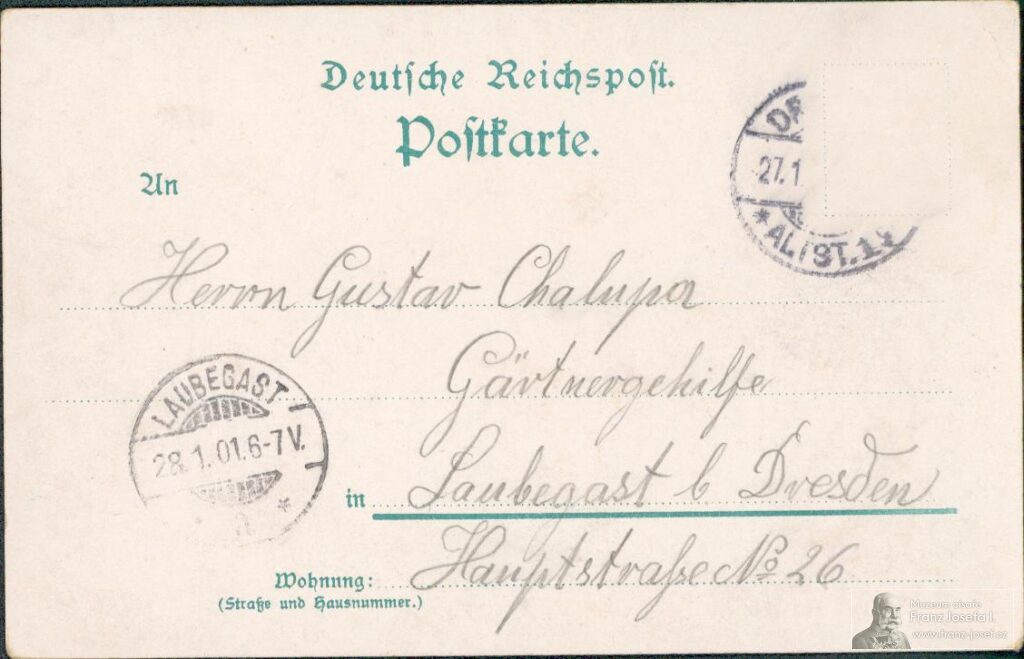 Deutsche Reichspost.
Postkarte.
An
27.1
*ALTST.1
Herrn Gustav Chalupa
Gärtnergehilfe
LAUBEGAST
28.1.01.6-7V.
*
in Laubegast b Dresden
Wohnung: Hauptstraße No 26
(Straße und Hausnummer.)
Muzeum císaře
Franz Josefa I.
www.franz-josef.cz